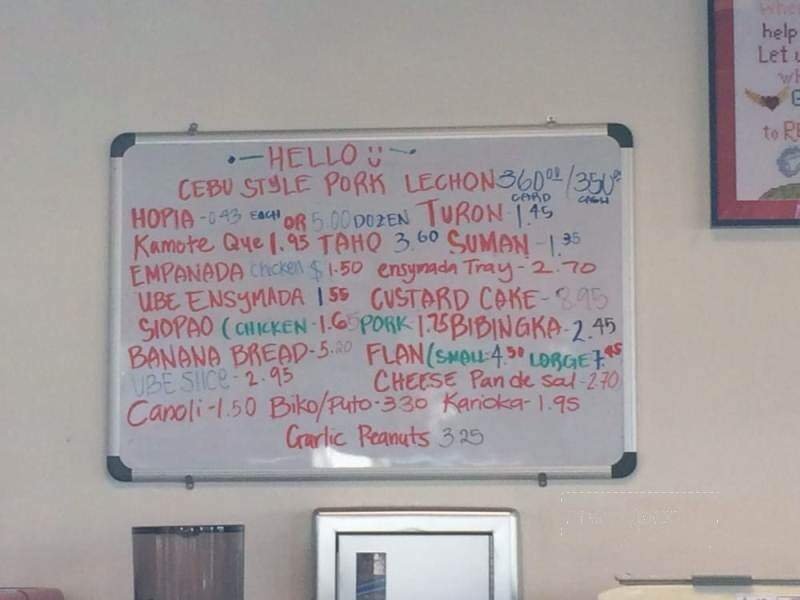 HELLO
CEBU STYLE PORK LECHON 360.00 / 350
CARD CASH
HOPIA - 0.43 EACH OR 5.00 DOZEN TURON - 1.45
Kamote Que 1.95 TAHO 3.60 SUMAN - 1.35
EMPANADA chicken $ 1.50 ensymada Tray - 2.70
UBE ENSYMADA 1.55 CUSTARD CAKE - 8.95
SIOPAO (CHICKEN - 1.65 PORK 1.75 BIBINGKA - 2.45
BANANA BREAD - 5.20 FLAN (SMALL - 4.50 LARGE 7.45
UBE SlIce - 2.95 CHEESE Pan de sal - 2.70
Canoli - 1.50 Biko/Puto - 3.30 Karioka - 1.95
Garlic Peanuts 3.25
help
Let
to